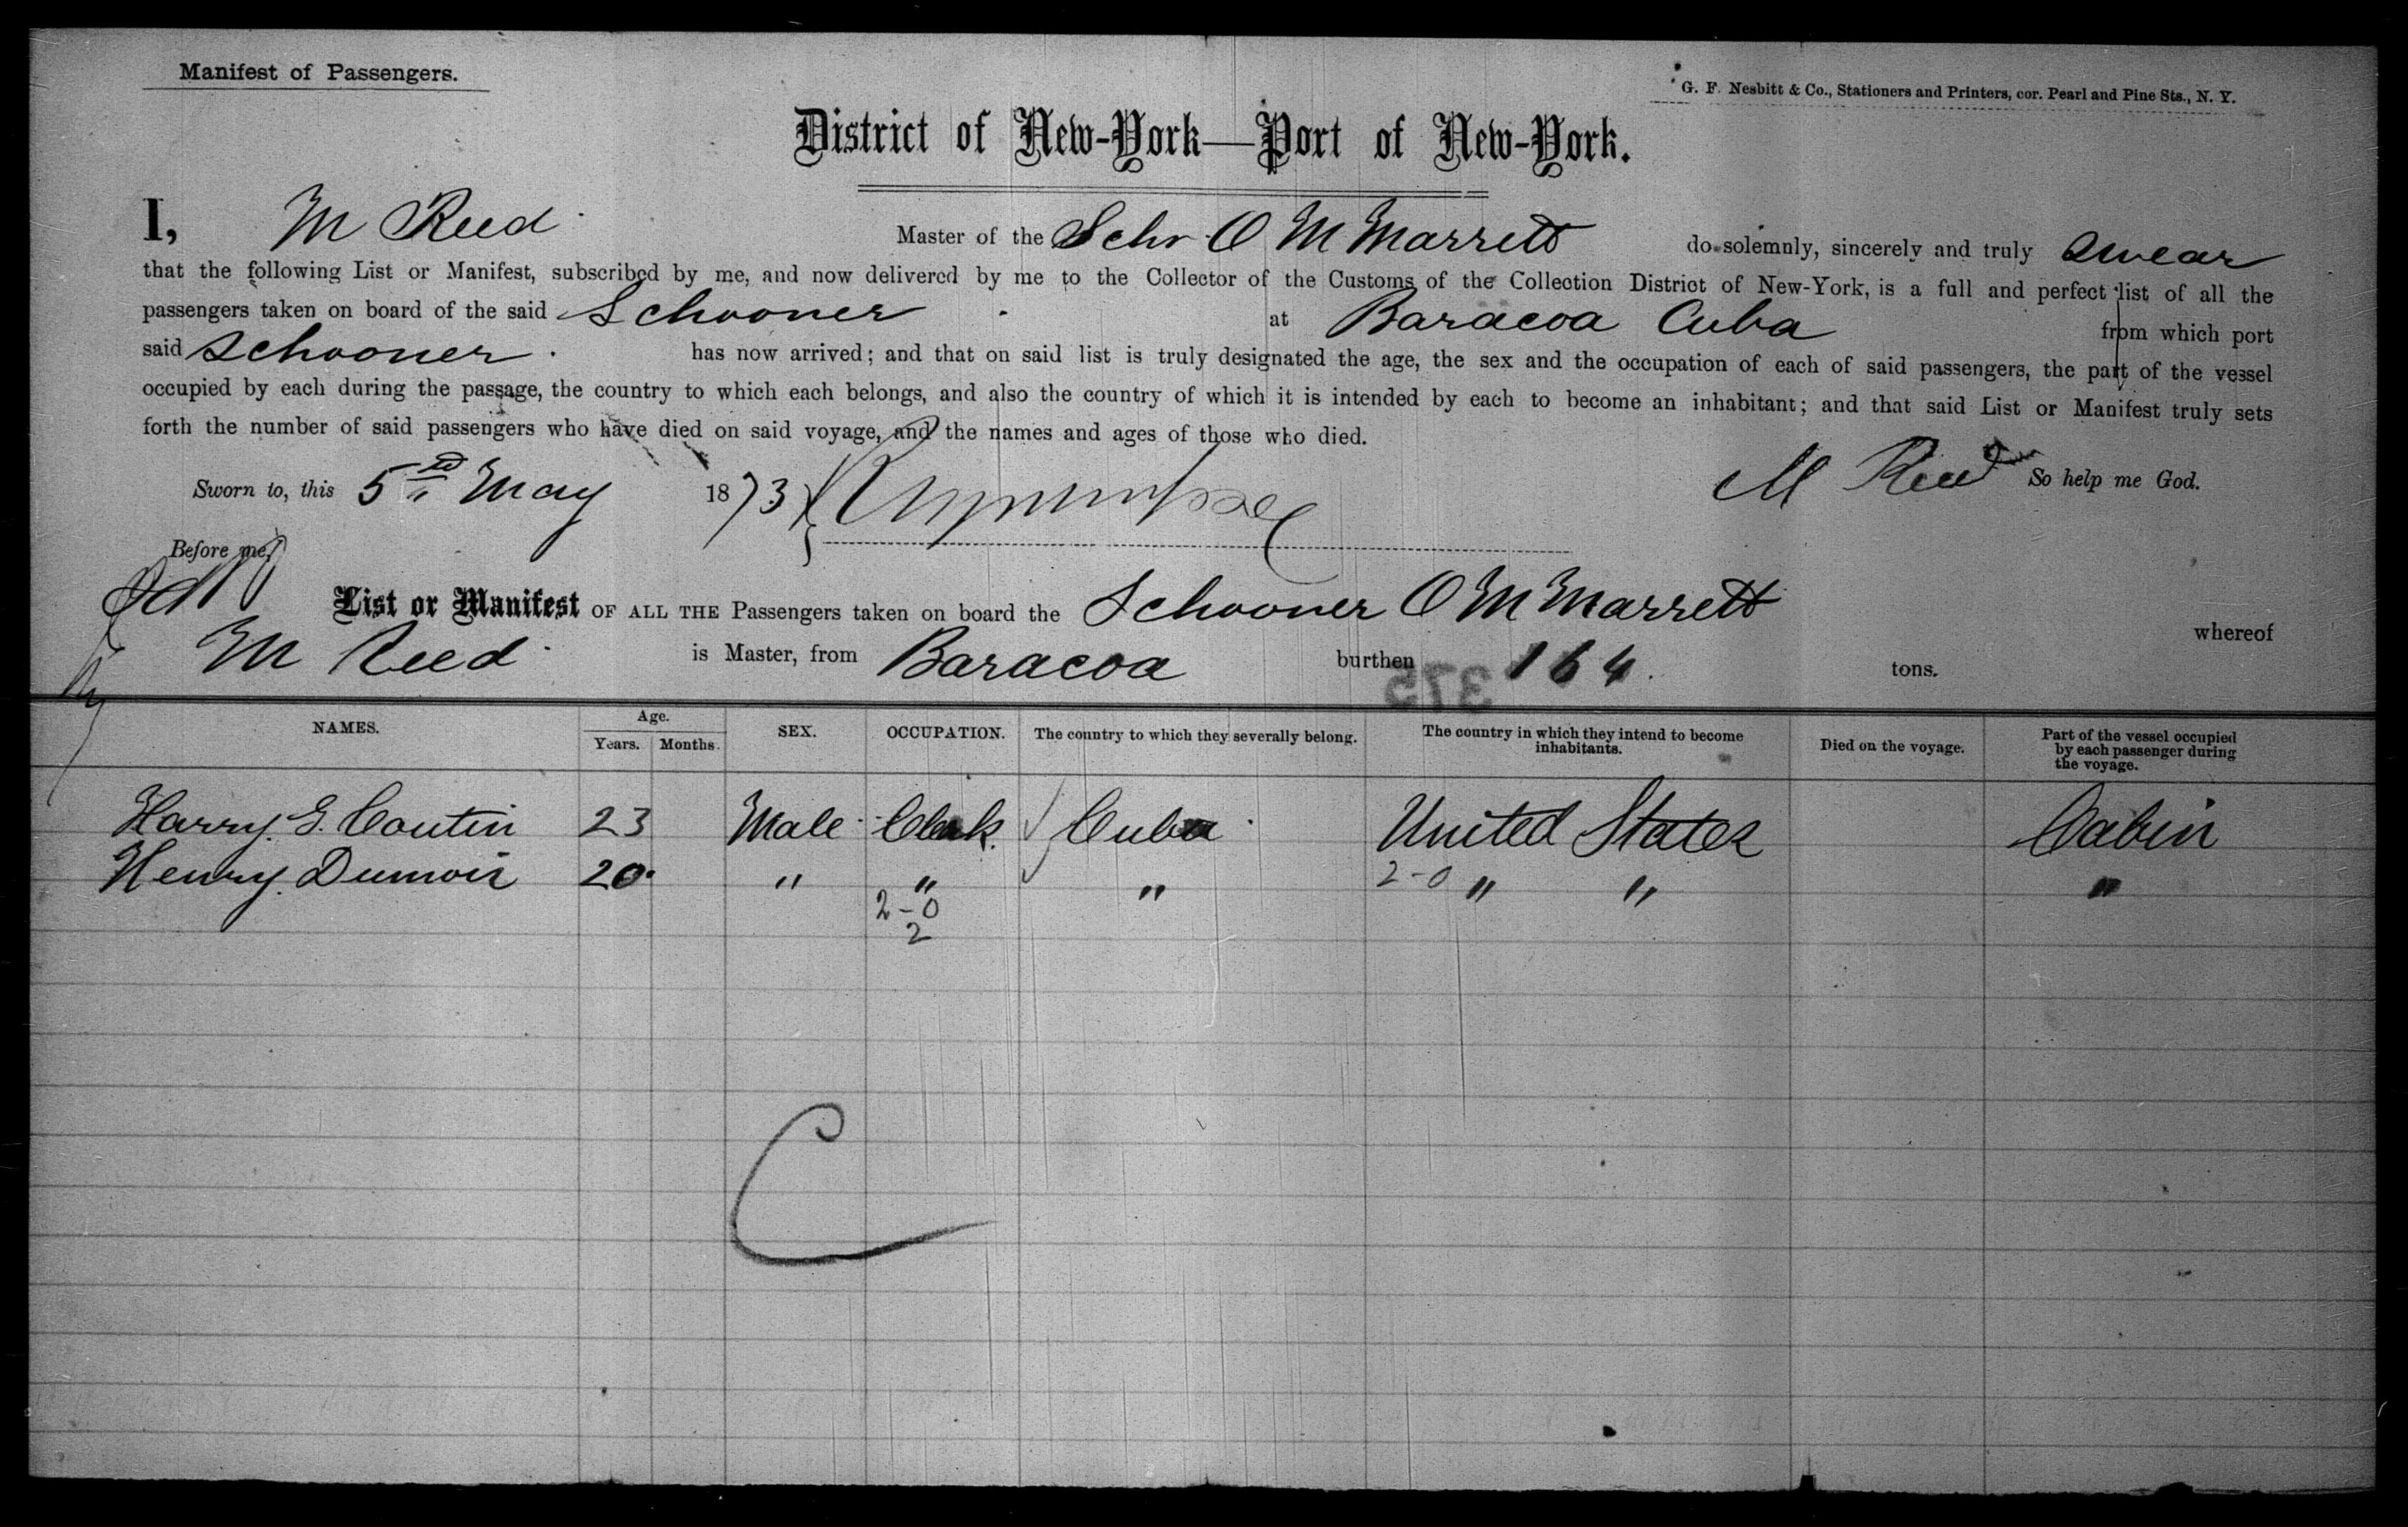 Manifest of Passengers.
G. F. Nesbitt & Co., Stationers and Printers, cor. Pearl and Pine Sts., N. Y.
District of New-York—Port of New-York.
I, M Reed Master of the Schr O M Marrett do solemnly, sincerely and truly swear
that the following List or Manifest, subscribed by me, and now delivered by me to the Collector of the Customs of the Collection District of New-York, is a full and perfect list of all the
passengers taken on board of the said Schooner at Baracoa Cuba from which port
said Schooner has now arrived; and that on said list is truly designated the age, the sex and the occupation of each of said passengers, the part of the vessel
occupied by each during the passage, the country to which each belongs, and also the country of which it is intended by each to become an inhabitant; and that said List or Manifest truly sets
forth the number of said passengers who have died on said voyage, and the names and ages of those who died.
Sworn to, this 5th May 1873 M Reed So help me God.
Before me,
List or Manifest OF ALL THE Passengers taken on board the Schooner O M Marrett whereof
M Reed is Master, from Baracoa burthen 164 tons.
375
NAMES. Age. Years. Months. SEX. OCCUPATION. The country to which they severally belong. The country in which they intend to become inhabitants. Died on the voyage. Part of the vessel occupied by each passenger during the voyage.
Harry G. Coutin 23 Male Clerk Cuba United States Cabin
Henry Dumois 20 " " " 2-0 " " "
2-0
2
C